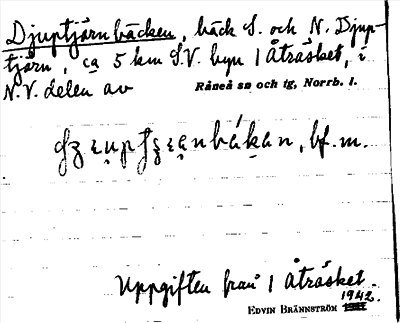 Djuptjärnbäcken, bäck S. och N. Djup-
tjärn, ca 5 km S.V. byn 1 Åträsket, i
N.V. delen av Råneå sn och tg, Norrb. l.
bf. m.
Uppgiften från 1 Åträsket.
1942.
EDVIN BRÄNNSTRÖM